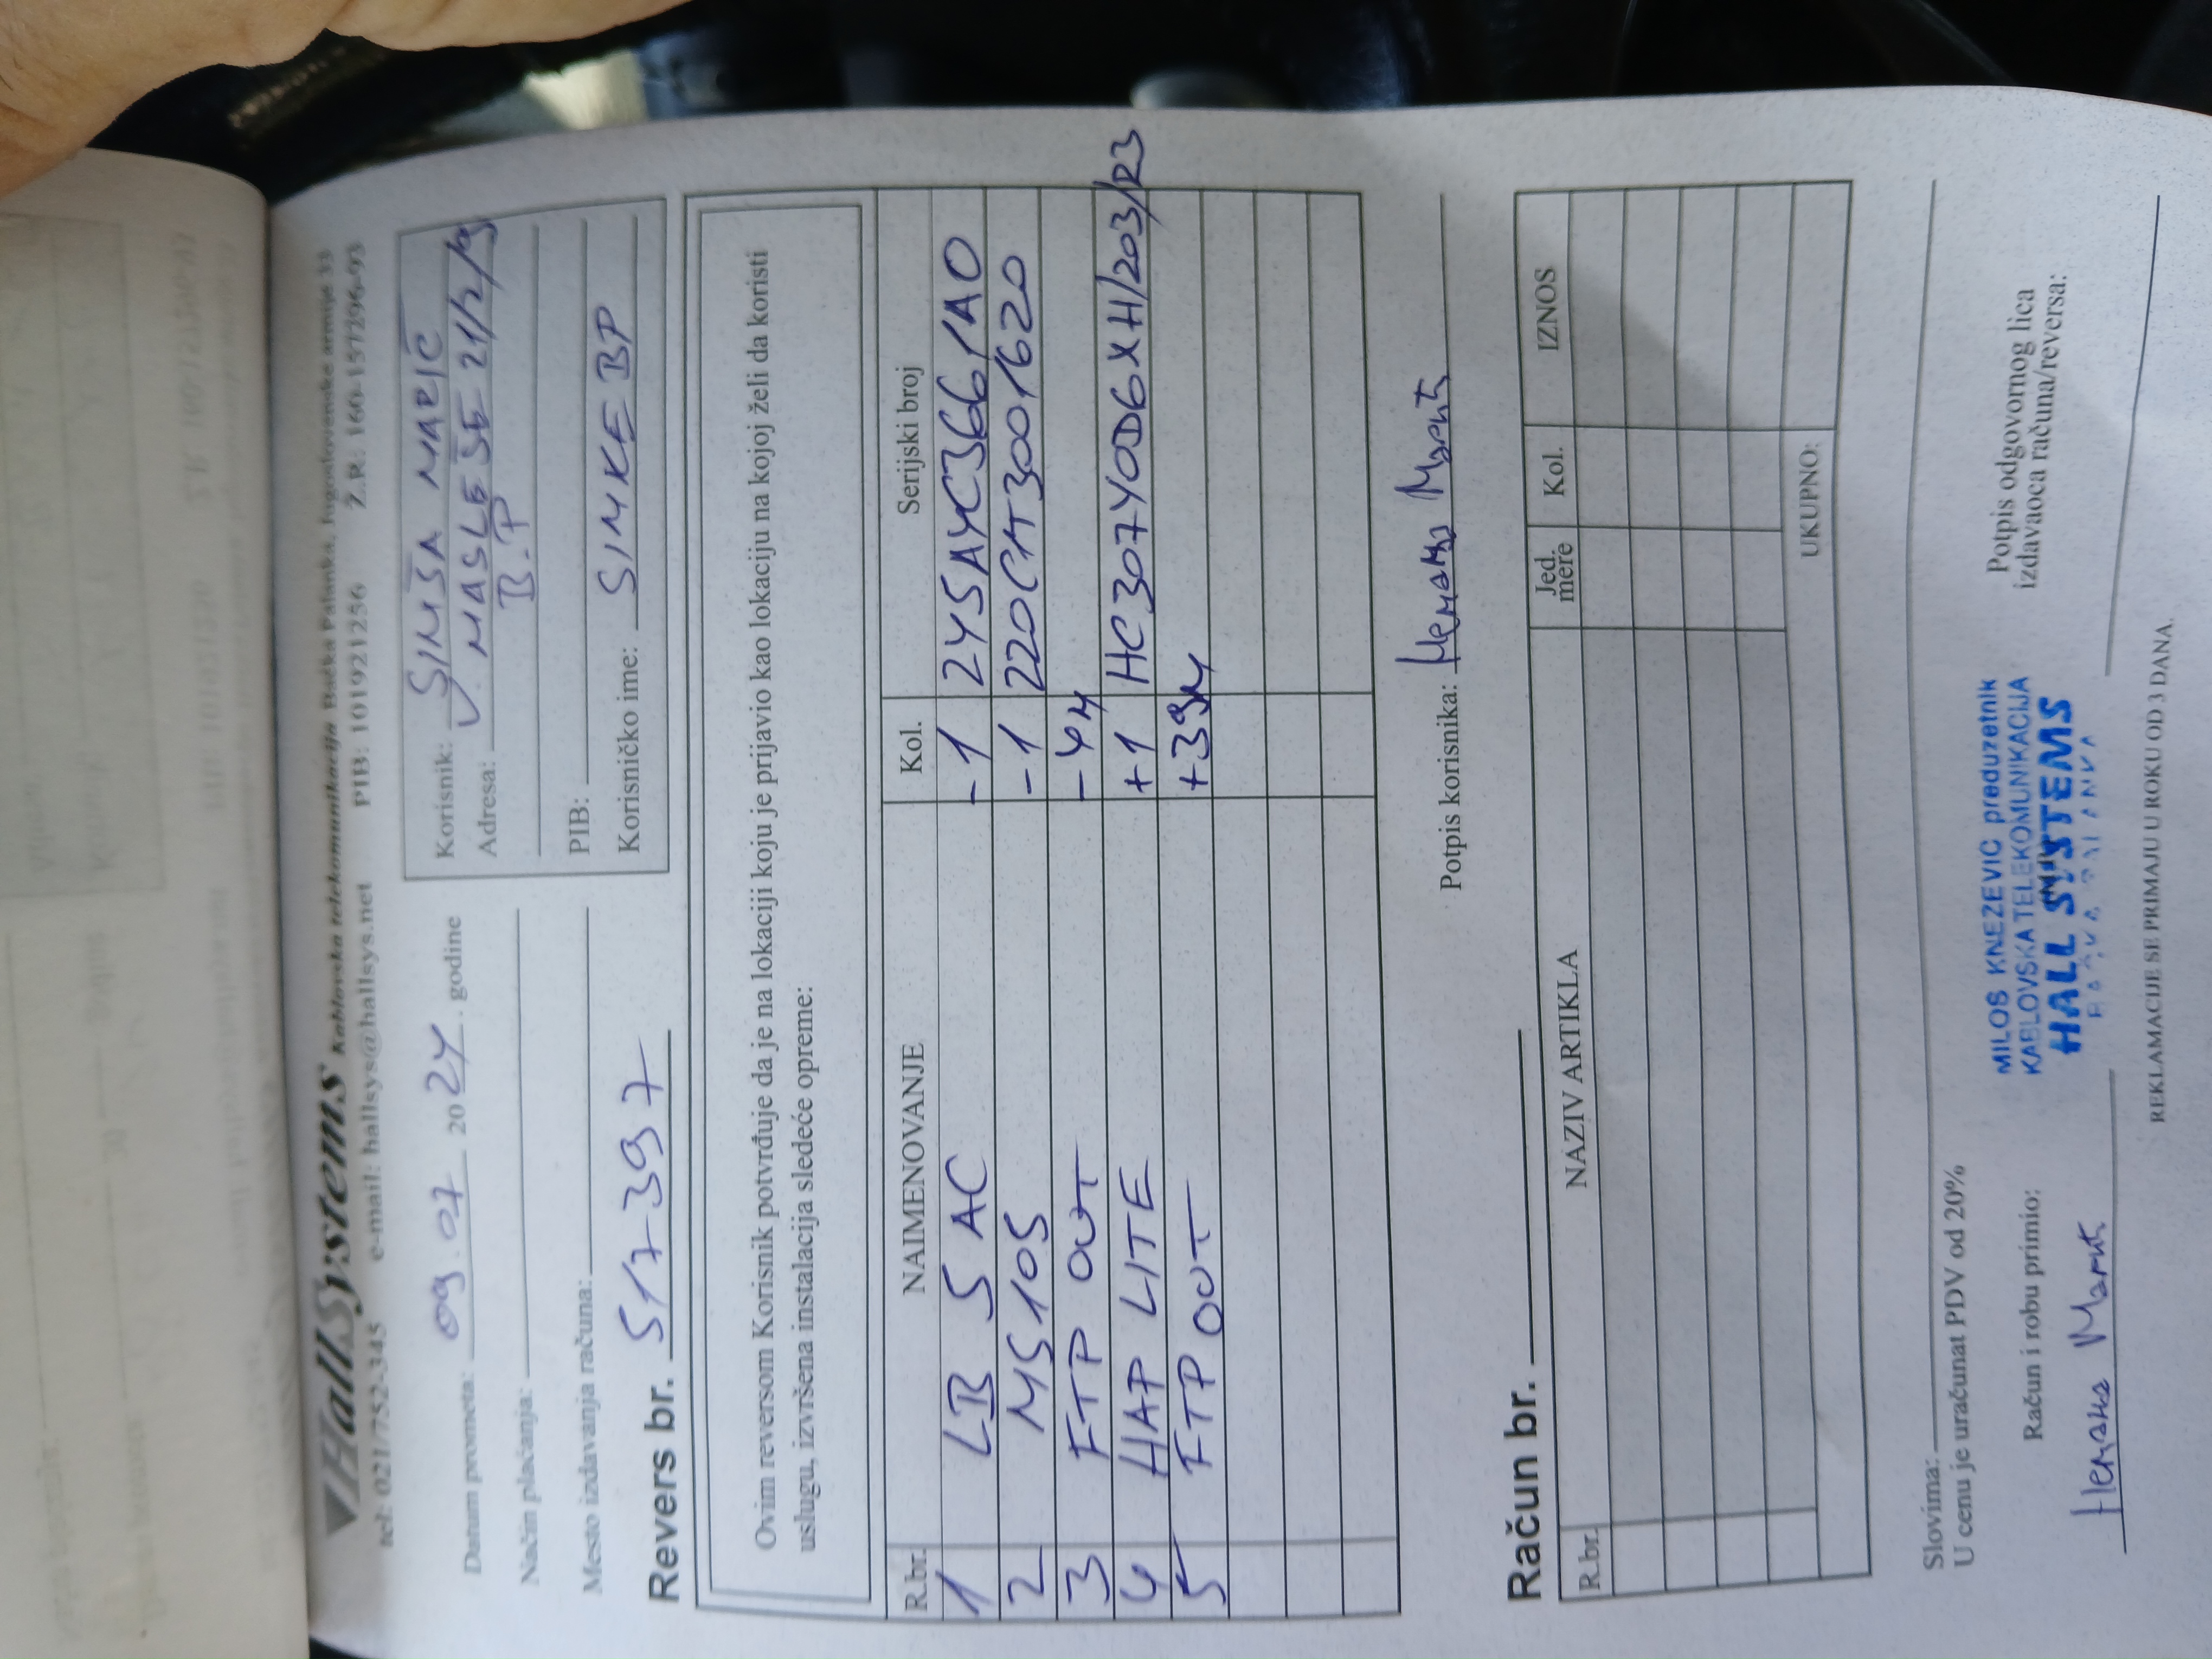 HallSystems Kablovska telekomunikacija Bačka Palanka, Jugoslovenske armije 33
tel: 021/752-345 e-mail: hallsys@hallsys.net PIB: 101921256 Ž.R: 160-157296-93
Datum prometa: 09.07 2024. godine
Način plaćanja:
Mesto izdavanja računa:
Korisnik: SINIŠA MARIĆ
Adresa: V. MASLEŠE 21/2/9
B.P
PIB:
Korisničko ime: SIMKEBP
Revers br. 517397
Ovim reversom Korisnik potvrđuje da je na lokaciji koju je prijavio kao lokaciju na kojoj želi da koristi
uslugu, izvršena instalacija sledeće opreme:
R.br. NAIMENOVANJE Kol. Serijski broj
1 LB 5 AC -1 245AYC3661A0
2 MS105 -1 220CMT3001620
3 FTP OUT -4M
4 HAP LITE +1 HC307Y0D6XH/203/R3
5 FTP OUT +39M
Potpis korisnika:
Račun br.
R.br. NAZIV ARTIKLA Jed. mere Kol. IZNOS
UKUPNO:
Slovima:
U cenu je uračunat PDV od 20%
Račun i robu primio:
MILOS KNEZEVIC preduzetnik
KABLOVSKA TELEKOMUNIKACIJA
HALL SYSTEMS
Potpis odgovornog lica
izdavaoca računa/reversa:
REKLAMACIJE SE PRIMAJU U ROKU OD 3 DANA.